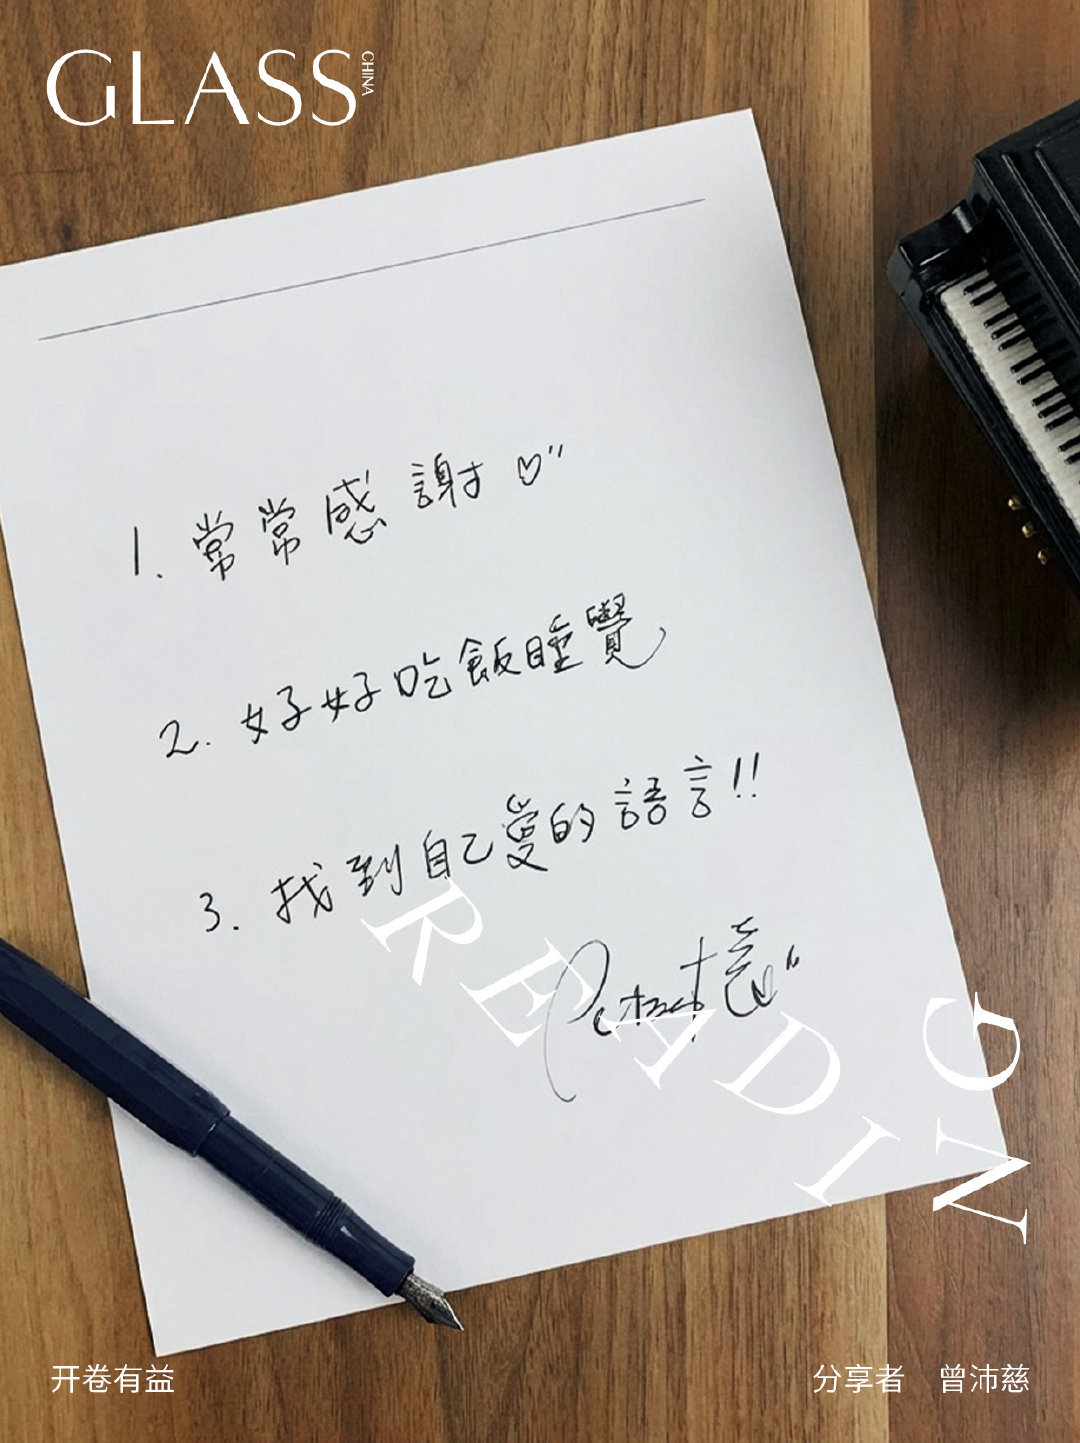 GLASS CHINA
1. 常常感謝♡"
2. 好好吃飯睡覺
3. 找到自己愛的語言!!
READING
开卷有益
分享者 曾沛慈